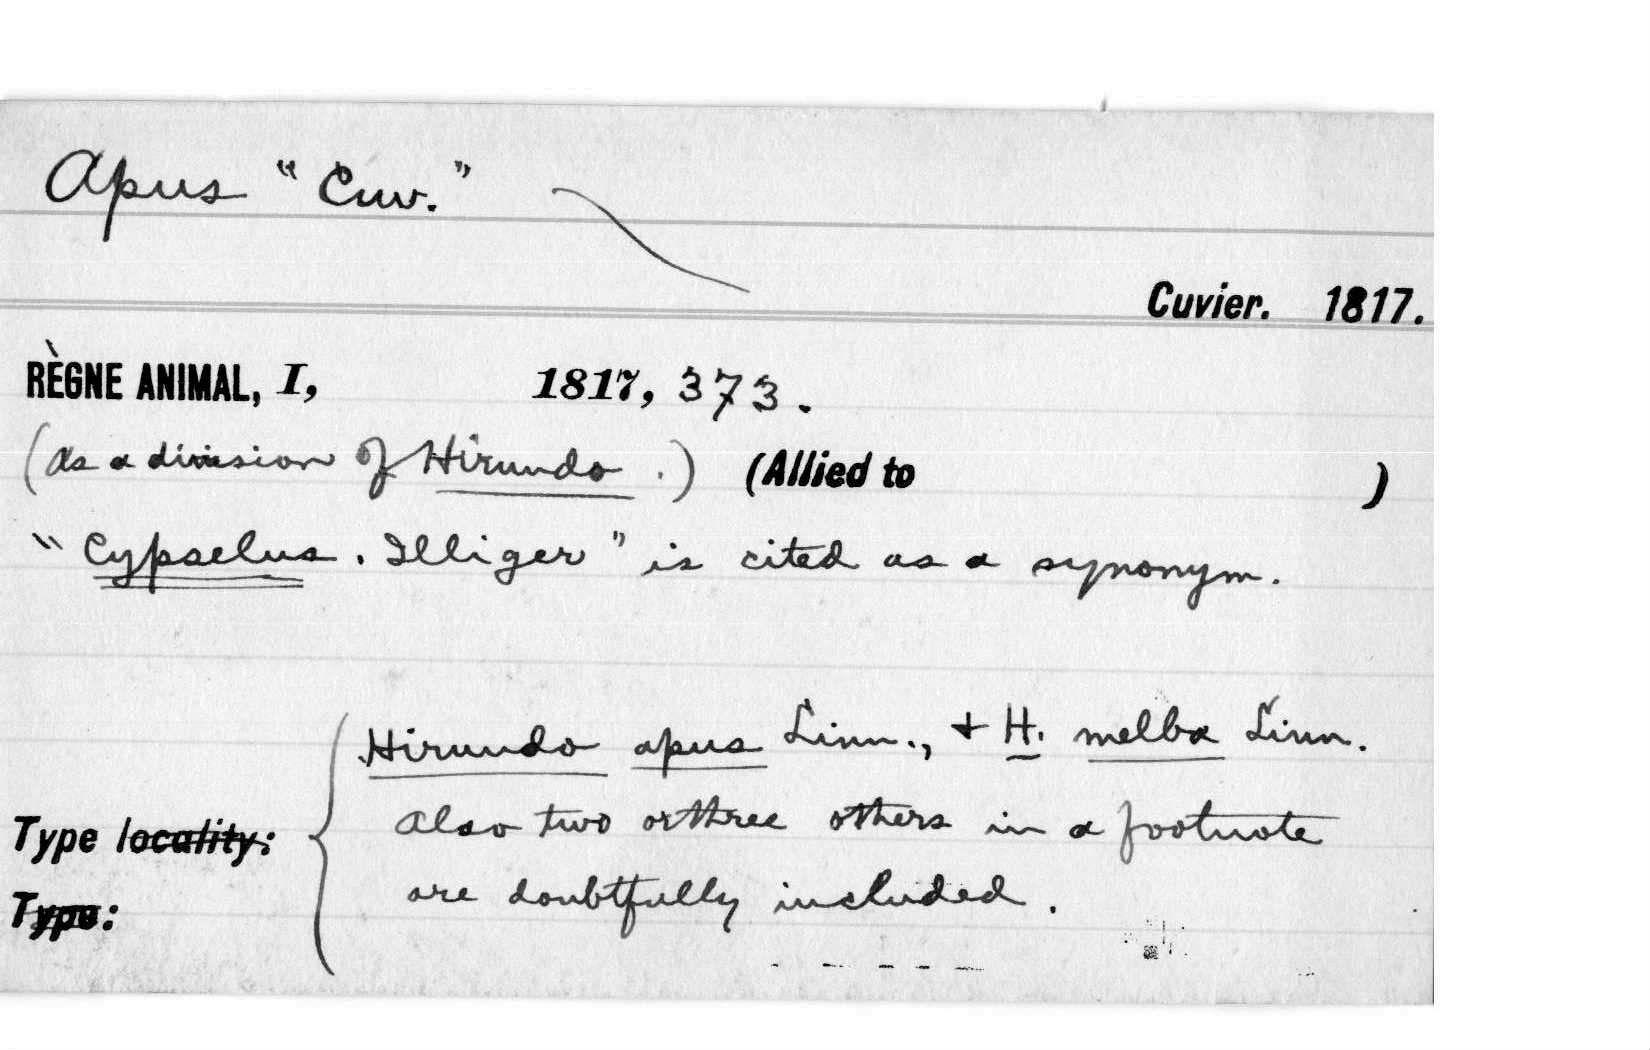 Apus "Cuv."
Cuvier. 1817.
RÈGNE ANIMAL, I, 1817, 373.
(As a division of Hirundo.) (Allied to )
"Cypselus. Illiger" is cited as a synonym.
Hirundo apus Linn., + H. melba Linn.
Also two or three others in a footnote
Type locality:
are doubtfully included.
Type: